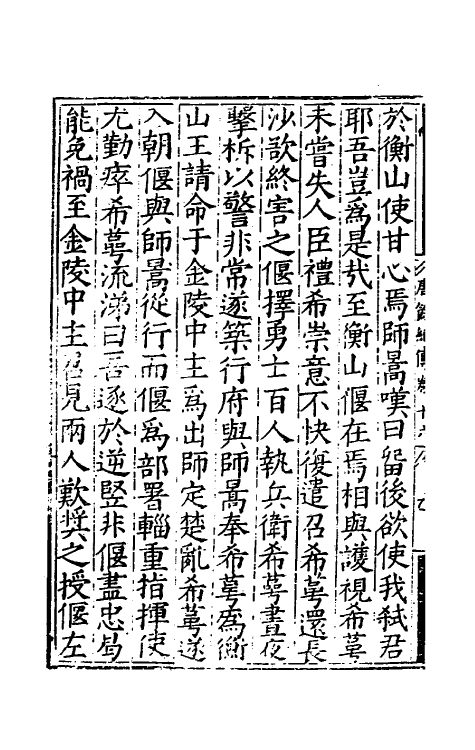 於衡山使甘心焉師暠嘆曰留後欲使我弑君
耶吾豈爲是㢤至衡山偃在焉相與護視希萼
未嘗失人臣禮希崇意不快復遣召希萼還長
沙欲終害之偃擇勇士百人執兵衛希萼晝夜
擊柝以警非常遂築行府與師暠奉希萼爲衡
山王請命于金陵中主爲出師定楚亂希萼遂
入朝偃與師暠從行而偃爲部署輜重指揮使
尤勤瘁希萼流涕曰吾逐於逆豎非偃盡忠曷
能免禍至金陵中主召見兩人歎奬之授偃左